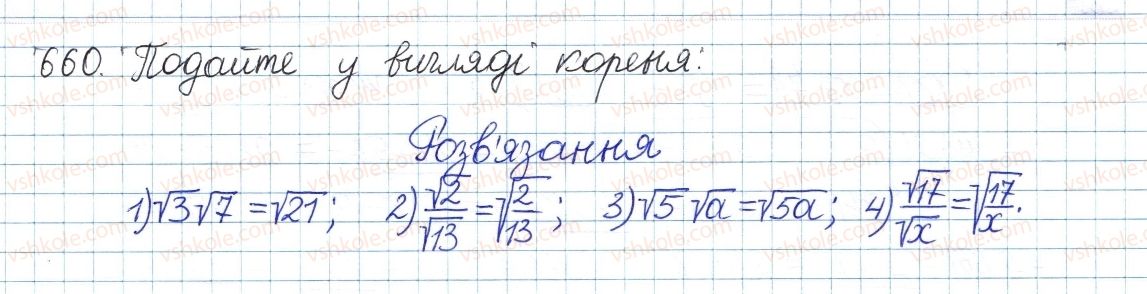 660. Подайте у вигляді кореня:
Розв'язання
1) √3√7 = √21; 2) √2/√13 = √(2/13); 3) √5 √a = √5a; 4) √17/√x = √(17/x).
vshkole.com